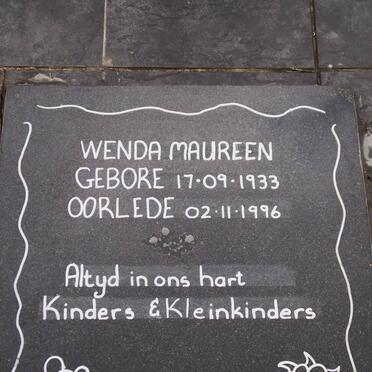 WENDA MAUREEN
GEBORE 17·09·1933
OORLEDE 02·11·1996
Altyd in ons hart
Kinders & Kleinkinders